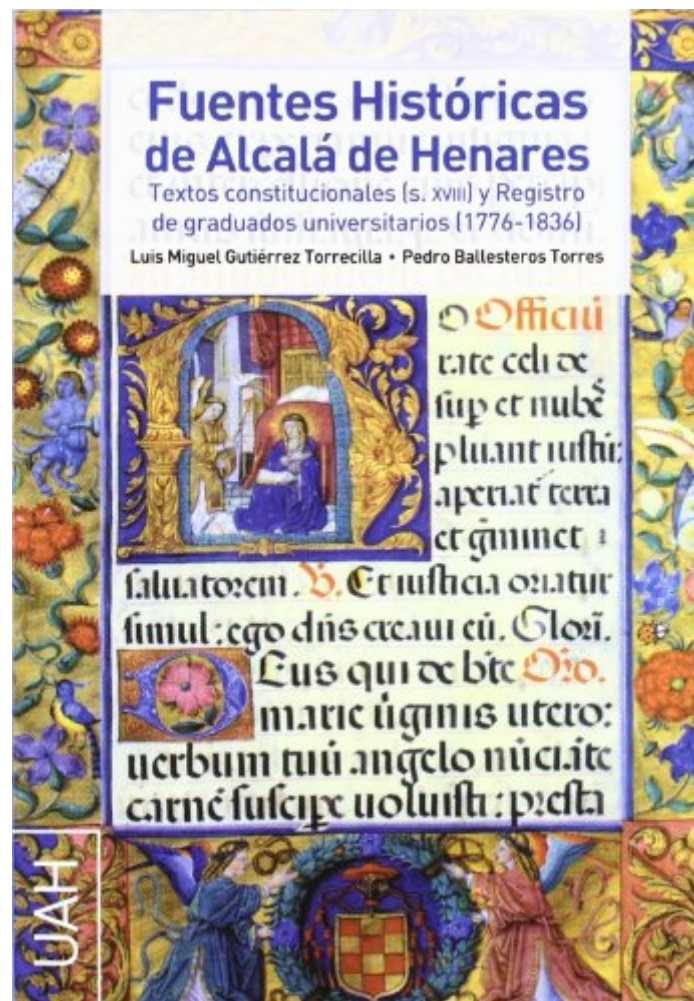 Fuentes Históricas
de Alcalá de Henares
Textos constitucionales (s. XVIII) y Registro
de graduados universitarios (1776-1836)
Luis Miguel Gutiérrez Torrecilla • Pedro Ballesteros Torres
R O Officiū
rate celi de
sup et nubē
pluant iustū:
aperiat terra
et g̃minet
saluatorem. V. Et iusticia oriatur
simul: ego dn̄s creaui eū. Glori.
Deus qui de bt̄e Oro.
marie ũginis utero:
uerbum tuū angelo nūciāte
carnē suscipe uoluisti: presta
UAH